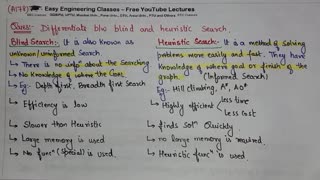 Easy Engineering Classes – Free YouTube Lectures
Ques: Differentiate b/w blind and heuristic Search.
Blind Search: It is also known as
unknown/uninformed Search
→ There is no info about the Searching
→ No Knowledge of where the Goal is
→ Eg: Depth first, Breadth first Search
→ Efficiency is low
→ Slower than Heuristic
→ Large memory is used
→ No func (special) is used.
Heuristic Search: It is a method of solving
problems more easily and quickly. They have
Knowledge of where goal or finish of the
graph. (Informed Search)
Eg:- Hill climbing, A*, AO*
→ Highly efficient
less time
less Cost
→ finds Sol Quickly
→ no large memory is required.
→ Heuristic func is used